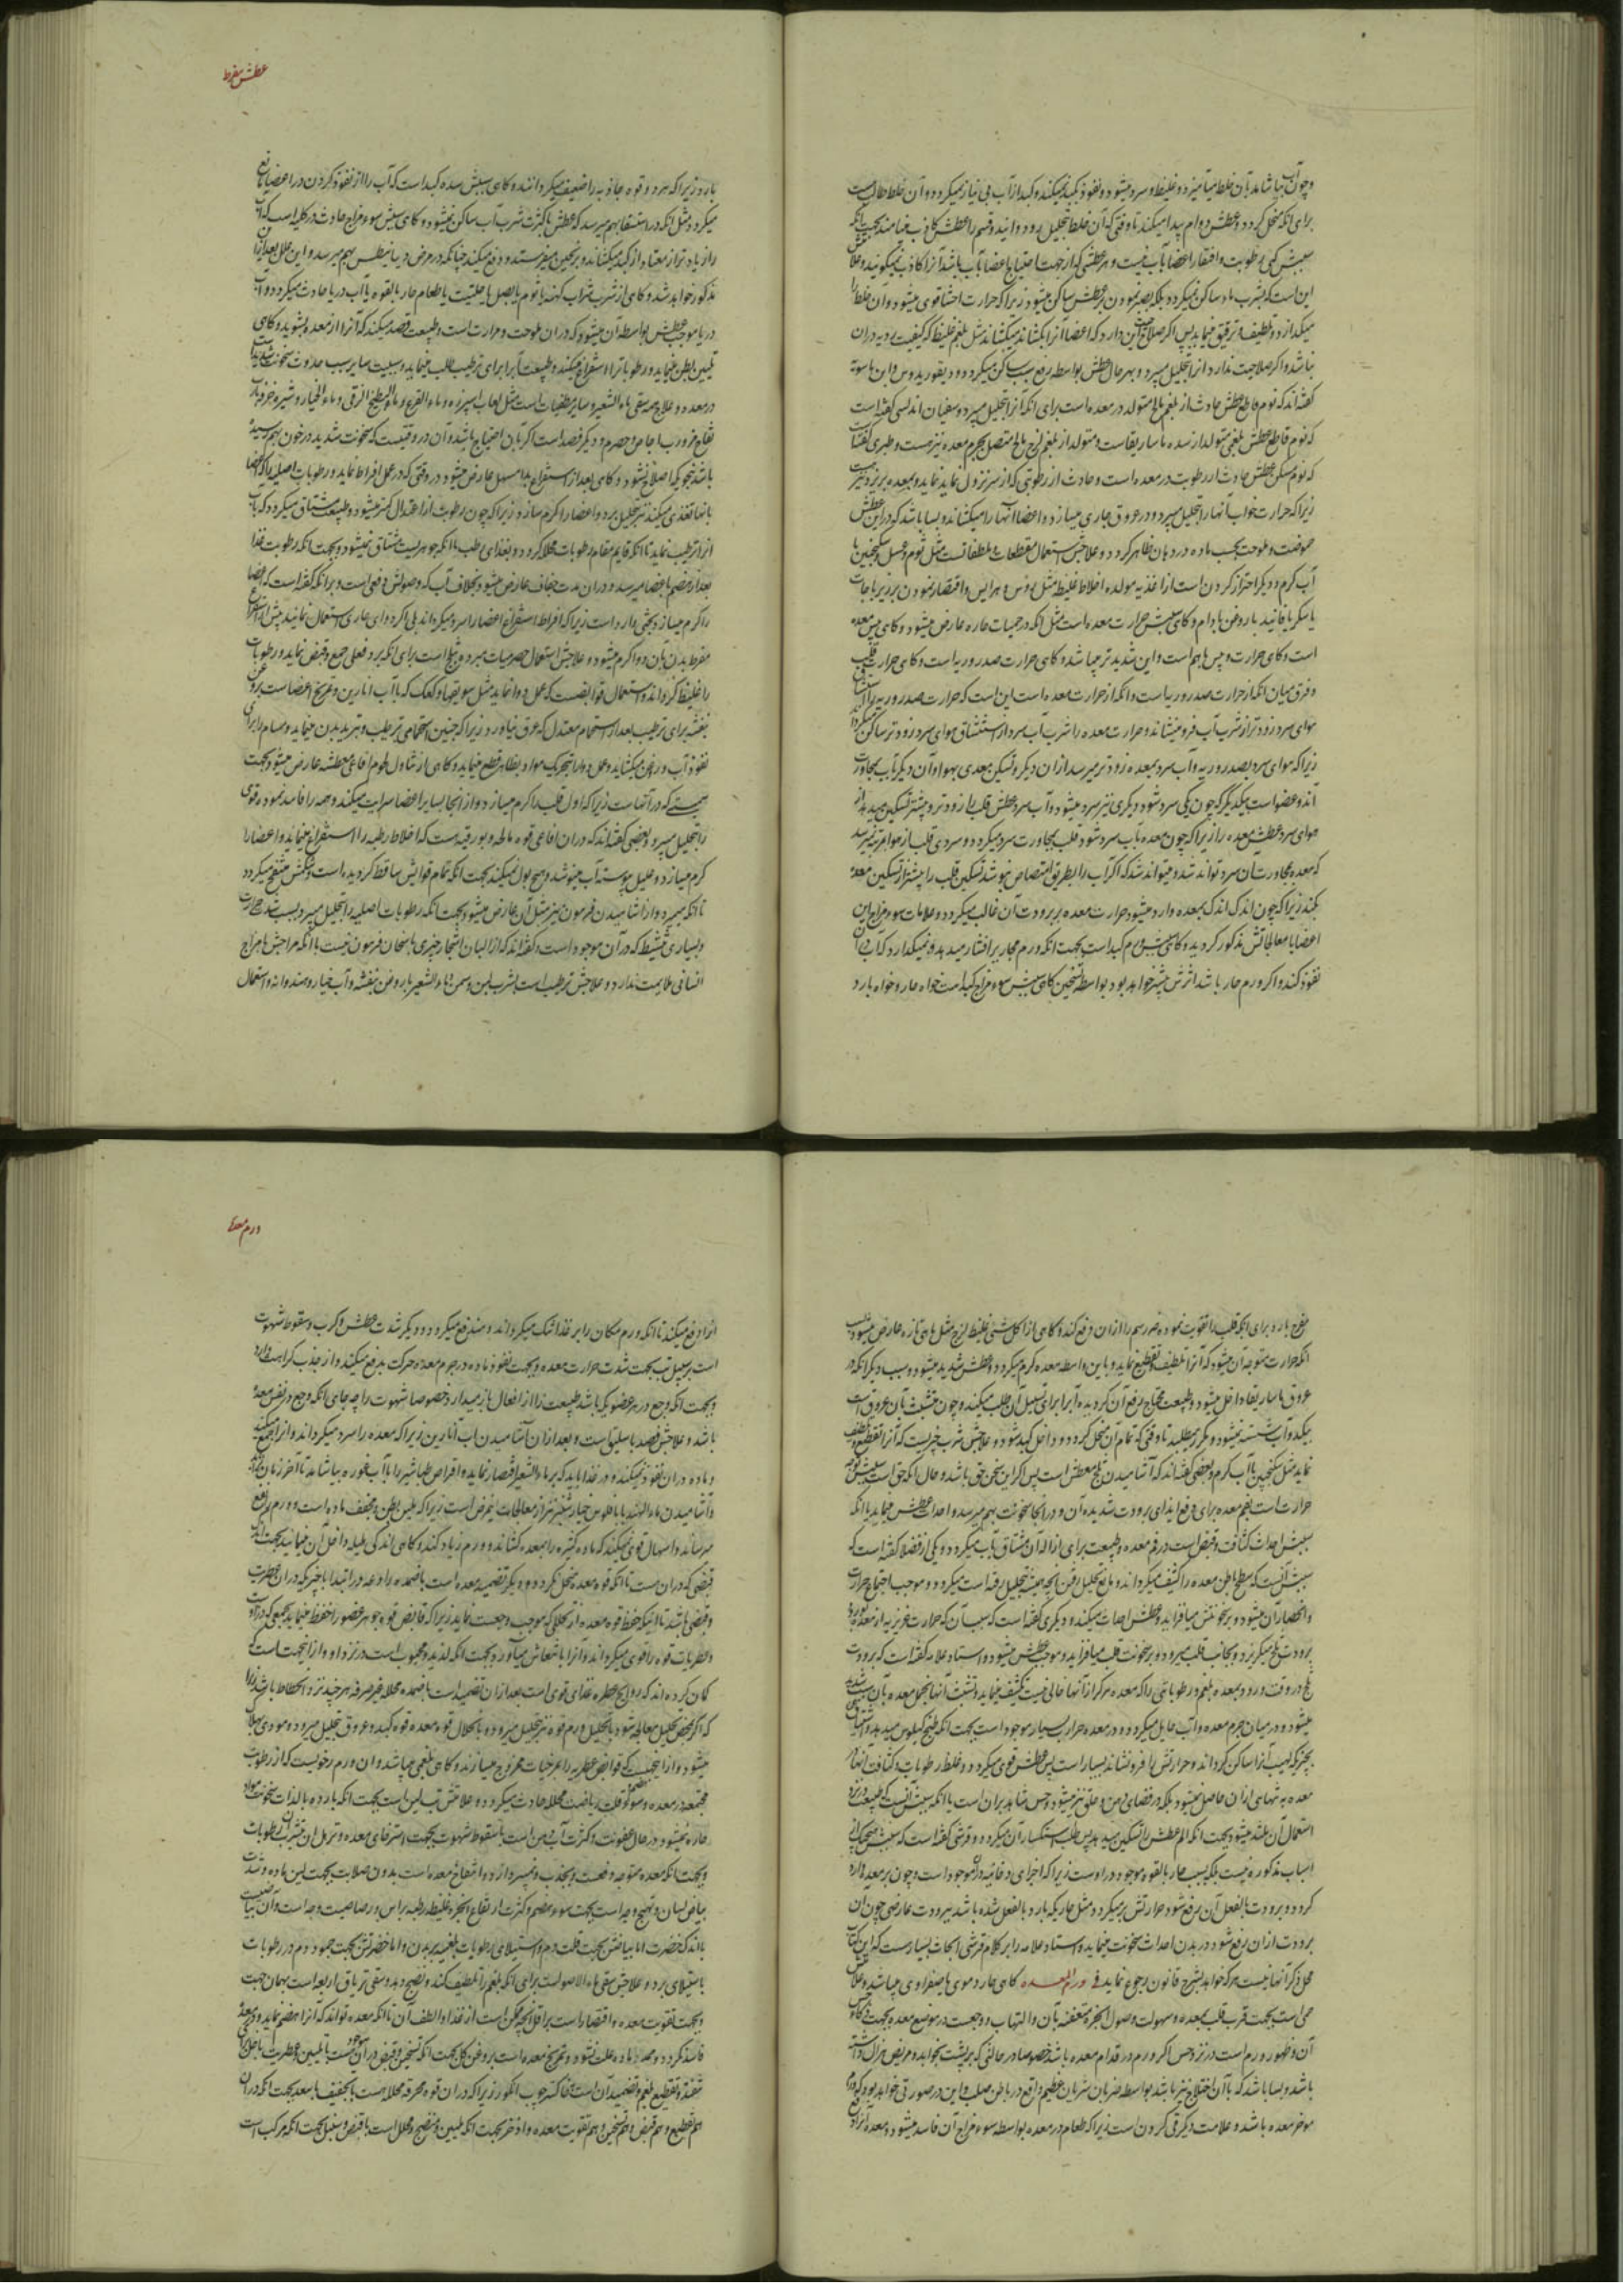 عطش مفرط
وچون آب بیاشامد بآن خلط بیامیزد و غلیظ و سرد میشود و نفوذ بکبد نمیکند و کبد از آب بی نیاز نمیگردد و آن خلط حال
برای آنکه منحل گردد و عطش دوام پیدا میکند تا وقتی که آن خلط بتحلیل رود و انید و قسم را عطش کاذب مینامند بجهت آنکه
سببش کمی رطوبت و افتقار اعضا بآب نیست و هر عطشی که از جهت احتیاج اعضا بآب باشد آنرا کاذب نمیگویند و علامت
این است که بشرب ماء ساکن نمیگردد بلکه بصبر نمودن بر عطش ساکن میشود زیرا که حرارت احشا قوی میشود و آن خلط را
میگدازد و تلطیف و ترقیق مینماید پس اگر صلاحیت این دارد که اعضا آنرا بکشاند میکشاند مثل بلغم غلیظ که کیفیت ردیه در آن
نباشد و اگر صلاحیت ندارد آنرا بتحلیل میبرد و بهر حال عطش بواسطه رفع سبب ساکن میگردد و دیقوریدوس و ابن ماسویه
گفته اند که ثوم قاطع عطش حادث از بلغم مالح متولد در معده است برای آنکه آنرا بتحلیل میبرد و سفیان اندلسی گفته است
که ثوم قاطع عطش بلغمی متولد از سده ماساریقاست و متولد از بلغم لزج مالح متصل بجرم معده نیز هست و طبری گفته است
که ثوم مسکن عطش حادث از رطوبت در معده است و حادث از رطوبتی که از سر نزول نماید و بمعده بریزد نیز
زیرا که حرارت خواب آنها را بتحلیل میبرد و در عروق جاری میسازد و اعضا آنها را میکشاند و بسا باشد که در این عطش
حموضت و ملوحت بحسب ماده در دهان ظاهر گردد و علاجش استعمال مقطعات و ملطفاتست مثل ثوم و عسل و سکنجبین با
آب گرم و دیگر احتراز کردن است از اغذیه مولده اخلاط غلیظ مثل رؤس و هرایس و اقتصار نمودن بر زیرباجات
یا سکر یا فانید با روغن بادام و گاهی سببش حرارت معده است مثل آنکه در حمیات حاره عارض میشود و گاهی یبس معده
است و گاهی حرارت و یبس باهم است و این شدیدتر میباشد و گاهی حرارت صدر و ریه است و گاهی حرارت قلب
و فرق میان آنکه از حرارت صدر و ریه است و آنکه از حرارت معده است این است که حرارت صدر و ریه را استنشاق
هوای سرد زودتر از شرب آب فرو مینشاند و حرارت معده را شرب آب سرد از استنشاق هوای سرد زودتر ساکن میگرداند
زیرا که هوای سرد بصدر و ریه و آب سرد بمعده زودتر میرسد از آن دیگر و تسکین معدی بهوا و آن دیگر بآب بمجاورت
آن دو عضو است بیکدیگر که چون یکی سرد شود دیگری نیز سرد میشود و آب سرد عطش قلب را زودتر و بیشتر تسکین میدهد از
هوای سرد عطش معده را زیرا که چون معده بآب سرد شود قلب بمجاورت سرد میگردد و سردی قلب از هوا بمرتبه نمیرسد
که معده بمجاورت آن سرد تواند شد و میتواند شد که اگر آب را بطریق امتصاص بنوشد تسکین قلب را بیشتر از تسکین معده
بکند زیرا که چون اندک اندک بمعده وارد میشود حرارت معده بر برودت آن غالب میگردد و علامات سوء مزاج این
اعضا با معالجاتش مذکور گردید و گاهی سببش ورم کبد است بجهت آنکه ورم مجاری را فشار میدهد و نمیگذارد که آب در آن
نفوذ کند و اگر ورم حار باشد اثرش بیشتر خواهد بود بواسطه تسخین و گاهی سببش سوء مزاج کبد است خواه حار و خواه بارد
بارد زیرا که هر دو قوه جاذبه را ضعیف میگردانند و گاهی سببش سده کبد است که آب را از نفوذ کردن در اعضا مانع
میگردد مثل آنکه در استسقا بهم میرسد که عطش با کثرت شرب آب ساکن نمیشود و گاهی سببش سوء مزاج حادث در کلیه است که آب
را زیاده تر از معتاد از کبد میکشاند و برنجین میفرستند و دفع میکند چنانکه در مرض دیابیطس بهم میرسد و این علل بعد از این
مذکور خواهد شد و گاهی از شرب شراب کهنه یا ثوم یا بصل یا حلتیت یا طعام حار بالقوه یا آب دریا حادث میگردد و آب
دریا موجب عطش بواسطه آن میشود که در آن ملوحت و حرارت است و طبیعت قصد میکند که آنرا از معده بشوید و گاهی
تلیین بطن مینماید و رطوباترا استفراغ میکند و طبیعت آبرا برای ترطیب طلب مینماید و بسبب سایر سبب حدوث سخونت شدید
در معده و علاج همه سقی ماء الشعیر و سایر مطفیات است مثل لعاب اسپرزه و ماء القرع و ماء البطیخ الزقی و ماء الخیار و شیره خرفه
تفاح مز و رب اجاص و حصرم و دیگر فصد است اگر بآن احتیاج باشد و آن در وقتیست که سخونت شدید در خون بهم رسیده
باشد بنحویکه اصلاح نشود و گاهی بعد از استفراغ بدا مسهل عارض میشود در وقتی که در عمل افراط نماید و رطوبات اصلیه را که اعضا
بآنها تغذی میکنند نیز بتحلیل برد و اعضا را گرم سازد زیرا که چون رطوبت از اعتدال کمتر میشود و طبیعت مشتاق میگردد که بآب
آنرا ترطیب نماید تا آنکه قایم مقام رطوبات محلله گردد و بغذای مرطب با آنکه جوهریست مشتاق نمیشود بجهت آنکه رطوبت غذا
بعد از هضم باعضا میرسد و در آن مدت جفاف عارض میشود بخلاف آب که وصولش دفعی است و بر آنکه گفته است که اعضا
را گرم میسازد بحثی وارد است زیرا که افراط استفراغ اعضا را سرد میگرداند بلی اگر دوای حاری استعمال نمایند پیش از استفراغ
مفرط بدن بآن دوا گرم میشود و علاجش استعمال حصرمیات مبرد و بریخ است برای آنکه برد فعلی جمع و قبض نماید و رطوبات
را غلیظ گرداند و استعمال قوابضست که عمل دوا نماید مثل سویقها و کعک که با آب انارین و تمریخ اعضاست بروغن
بنفشه برای ترطیب بعد از استحمام معتدل که عرق نیاورد زیرا که چنین استحمامی ترطیب و تبرید بدن مینماید و مسام را برای
نفوذ آب و روغن میگشاید و عمل دوا را بتحریک مواد بظاهر قطع مینماید و گاهی از تناول لحوم افاعی معطشه عارض میشود بجهت
سمیتی که در آنهاست زیرا که اول قلب را گرم میسازد و از آنجا بسایر اعضا سرایت میکند و همه را فاسد نموده قوی
را بتحلیل میبرد و بعضی گفته اند که در آن افاعی قوه مالحه و بورقیه است که اخلاط رطبه را استفراغ مینماید و اعضا را
گرم میسازد و علیل پیوسته آب مینوشد و هیچ بول نمیکند بجهت آنکه تمام قوایش ساقط گردیده است و شکمش منتفخ میگردد
تا آنکه بمیرد و از آشامیدن فرفیون نیز مثل آن عارض میشود بجهت آنکه رطوبات اصلیه را بتحلیل میبرد بسبب شدت حرارت
و بسیاری تنشیط که در آن موجود است و گفته اند که از البان اشجار چیزی باسخان فرفیون نیست با آنکه مزاجش با مزاج
انسانی ملایمت ندارد و علاجش ترطیب است بشرب لبن و سمن و ماء الشعیر با روغن بنفشه و آب خیار و هندوانه و استعمال
ورم معده
مفرح بارد برای آنکه قلب را تقویت نموده ضرر سم را از آن دفع کند و گاهی از اکل شئی غلیظ لزج مثل ماهی تازه عارض میشود بسبب
آنکه حرارت متوجه آن میشود که آنرا تلطیف و تقطیع نماید و باین واسطه معده گرم میگردد و عطش شدید میشود و سبب دیگر آنکه در
عروق ماساریقا داخل میشود و طبیعت محتاج برفع آن گردیده آبرا برای تسییل آن طلب میکند و چون متشبث بآن عروق است
بیکدو آب شسته نمیشود و مکرر میطلبد تا وقتی که تمام آن منحل گردد و داخل کبد شود و علاجش شرب چیزیست که آنرا تقطیع و تلطیف
نماید مثل سکنجبین با آب گرم و بعضی گفته اند که آشامیدن ثلج معطش است پس اگر این سخن حق باشد و حال آنکه حق است سببش توجه
حرارت است بهم معده برای دفع ایذای برودت شدیده آن و در آنجا سخونت بهم میرسد و احداث عطش مینماید یا آنکه
سببش احداث کثافت و قبض است در فم معده و طبیعت برای ازاله آن مشتاق بآب میگردد و یکی از فضلا گفته است که
سببش آنست که سطح باطن معده را کثیف میگرداند و مانع تحلیل رفتن ابخره بهیئه تحلیل رفته است میگردد و موجب اجتماع حرارت
و انحصار آن میشود و بر سخونتش میافزاید و عطش احداث میکند و دیگری گفته است که سبب آن که حرارت غریزیه از معده بورود
برودت ثلج میگریزد و بجانب قلب میرود و بر سخونت قلب میافزاید و موجب عطش میشود و استاد علامه گفته است که برودت
ثلج در وقت ورود بمعده بلغم و رطوباتی را که معده هرگز از آنها خالی نیست تکثیف مینماید و تشبث آنها بخمل معده بآن شدید
میشود و در میان جرم معده و آب حایل میگردد و در معده حرارت بسیار موجود است بجهت آنکه طبخ کیلوس میدهد و اشتیاق
بچیزیکه لهیب آنرا ساکن گرداند و حرارتش را فرو نشاند بسیار است پس عطش قوی میگردد و غلظ رطوبات و کثافت آنها در
معده به تنهایی از آن حاصل نمیشود بلکه در فضای دهن و حلق نیز میشود و حس شاهد بر آن است یا آنکه سببش آنست که طبیعت در نزد
استعمال آن ملتذ میشود بجهت آنکه الم عطش را تسکین میدهد پس طلب استکثار آن میگردد و قرشی گفته است که سببش هیچیک از
اسباب مذکوره نیست بلکه سبب حار بالقوه موجود در اوست زیرا که اجزای دخانیه در آن موجود است و چون بر معده وارد
گردد و برودت بالفعل آن رفع شود حرارتش بر میگردد مثل حاریکه بارد بالفعل شده باشد ببرودت عارضی چون آن
برودت از آن رفع شود در بدن احداث سخونت مینماید و استاد علامه را بر کلام قرشی ابحاث بسیارست که این کتاب
محل ذکر آنها نیست هر که خواهد بشرح قانون رجوع نماید فی ورم المعده گاهی حار دموی یا صفراوی میباشد و علامتش
حمی است بجهت قرب قلب بمعده و سهولت وصول ابخره متعفنه بآن و التهاب و وجعست در موضع معده بجهت ذکاوت حس
آن و ظهور ورم است در نزد حس اگر ورم در قدام معده باشد خصوصا در حالتی که بر پشت بخوابد و مریض هزال داشته
باشد و بسا باشد که با آن اختلاج نیز باشد بواسطه ضربان شریان عظیم واقع در باطن صلب و این در صورتی خواهد بود که ورم
در مؤخر معده باشد و علامت دیگر قی کردن است زیرا که طعام در معده بواسطه سوء مزاج آن فاسد میشود و معده آنرا دفع
آنرا دفع میکند تا آنکه ورم مکان را بر غذا تنگ میگرداند و مندفع میگردد و دیگر شدت عطش و کرب و سقوط شهوت
است بر سبیل تب بجهت شدت حرارت معده و بجهت نفوذ ماده در جرم معده و حرکت بدفع میکند و از جذب کراهت دارد
و بجهت آنکه وجع در هر عضو که باشد طبیعت را از افعال باز میدارد خصوصا شهوت را چه جای آنکه وجع در نفس معده
باشد و علاجش فصد باسلیق است و بعد از آن آشامیدن آب انارین زیرا که معده را سرد میگرداند و آنرا جمع میکند
و ماده در آن نفوذ نمیکند و در غذا باید که بر ماء الشعیر اقتصار نماید و اقراص طباشیر را با آب غوره بیاشامد تا آخر زمان تزید
و آشامیدن ماء الهندبا با فلوس خیارشنبر نیز از معالجات این مرض است زیرا که ملین بطن و مجفف ماده است و ورم را نفع
میرساند و اسهال قوی نمیکند که ماده کثیره را بمعده کشاند و ورم زیاد کند و گاهی اندکی هلیله داخل آن مینمایند بجهت اندک
قبضی که در آن هست تا آنکه قوه معده منحل نگردد و دیگر تضمید معده است باضمده رادعه در ابتدا با چیزیکه در آن عطریت
و قبضی باشد تا اینکه حفظ قوه معده از انحلالی که موجب وجعست نماید زیرا که قابض قوه و جوهر عضو را حفظ مینماید بجمعی که در اوست
و عطریات قوه را قوی میگرداند و آنرا بانتعاش میآورد بجهت آنکه لذیذ و محبوب است در نزد او و از اینجهت است که
گمان کرده اند که روایح عطره غذای قوی است بعد از آن تضمید است باضمده محلله غیر صرفه هر چند نزد انحطاط باشد زیرا
که اگر بمحض تحلیل معالجه شود با تحلیل ورم قوه نیز بتحلیل میرود و با انحلال قوه معده قوه کبد و عروق بتحلیل میرود و مودی بهلاک
میشود و از اینجهتست که قوابض عطریه را با مرخیات ممزوج میسازند و گاهی بلغمی میباشد و آن ورم رخویست که از رطوبات
مجتمعه در معده و سوء هضم و قلت ریاضت محلله حادث میگردد و علامتش تب لین است بجهت آنکه بارده بالذات سخونت
حاره نمیشود در حال عفونت و کثرت آب دهن است با سقوط شهوت بجهت استرخای معده و ترهل آن بتشرب آن رطوبات
و بجهت آنکه معده متوجه دفعست و بجذب نمیپردازد و انتفاخ معده است بدون صلابت بجهت لین ماده و شدت
بیاض لسان و تهیج وجه است بجهت سوء هضم و کثرت ارتفاع ابخره غلیظه رطبه براس و رصاصیت وجه است و آن بیاضیست
با اندک خضرت اما بیاضش بجهت قلت دم و استیلای رطوبات بلغمیه بر بدن و اما خضرتش بجهت جمود دم در رطوبات
باستیلای برد و علاجش سقی ماء الاصولست برای آنکه بلغم را تلطیف کند و نضج دهد و سقی تریاق اربعه است بهمان جهت
و بجهت تقویت معده و اقتصار است بر اقل آنچه ممکن است از غذا و الطف آن تا آنکه معده تواند که آنرا هضم نماید و در معده
فاسد نگردد و ممد ماده علت نشود و تمریخ معده است بروغن گل بجهت آنکه تسخین و قبض در آن موجود است با تلیین و عطریت
شفته و تقطیع بلغم و تضمید آن است بخاکستر چوب انگور زیرا که در آن قوه محرقه محلله هست با تجفیف یا سعد بجهت آنکه در آن
هم تقطیع و هم قبض و هم تسخین و هم تقویت معده و اذخر بجهت آنکه ملین و منضج و محلل است با قبض و سنبل بجهت آنکه مرکب است